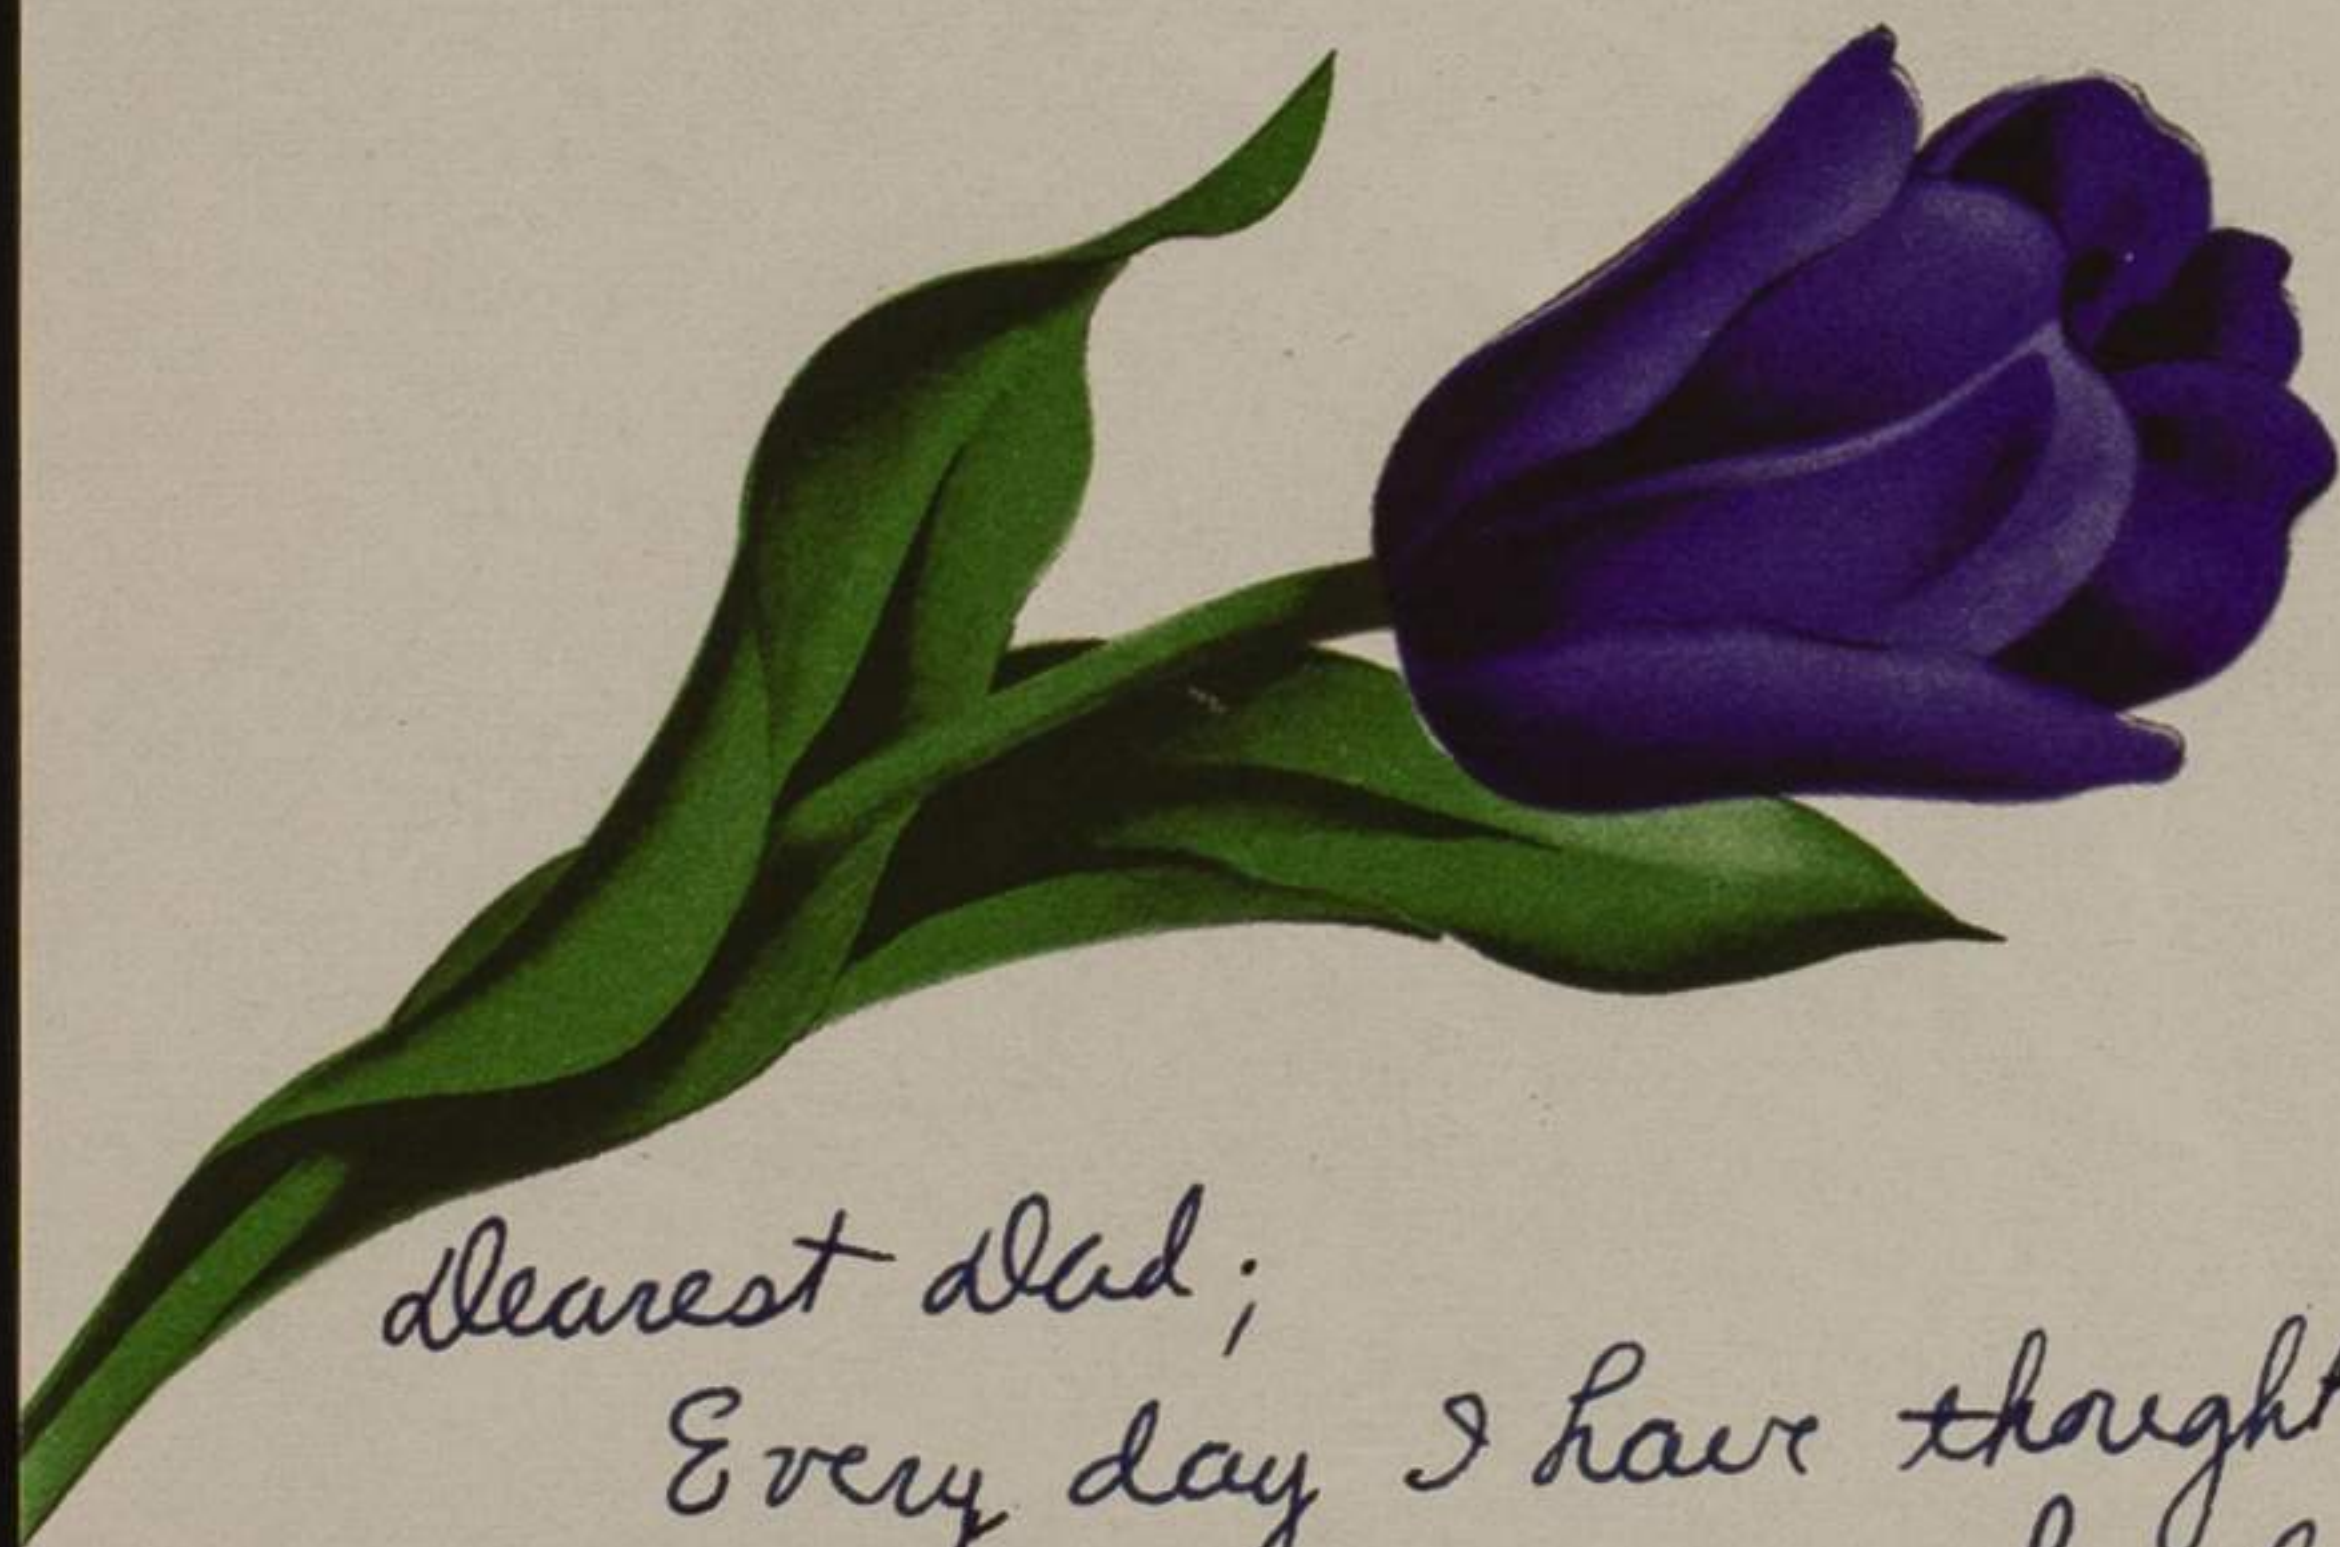 Dearest Dad;
Every day I have thought